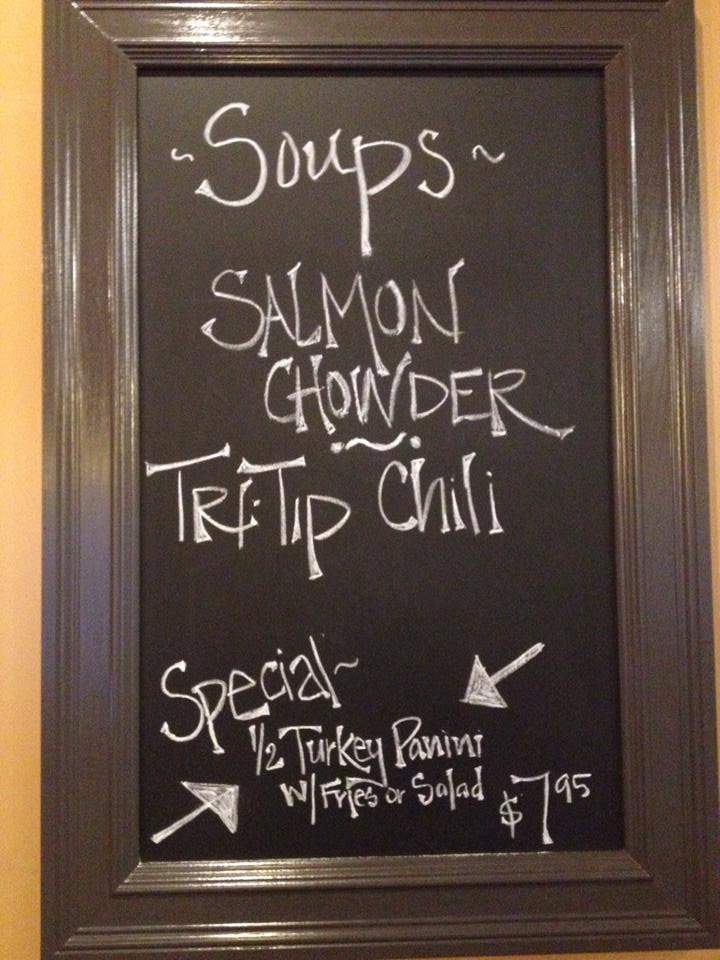 ~Soups~
SALMON
CHOWDER
~
TRI-TIP Chili
Special~
1/2 Turkey Panini
W/ Fries or Salad
$7.95